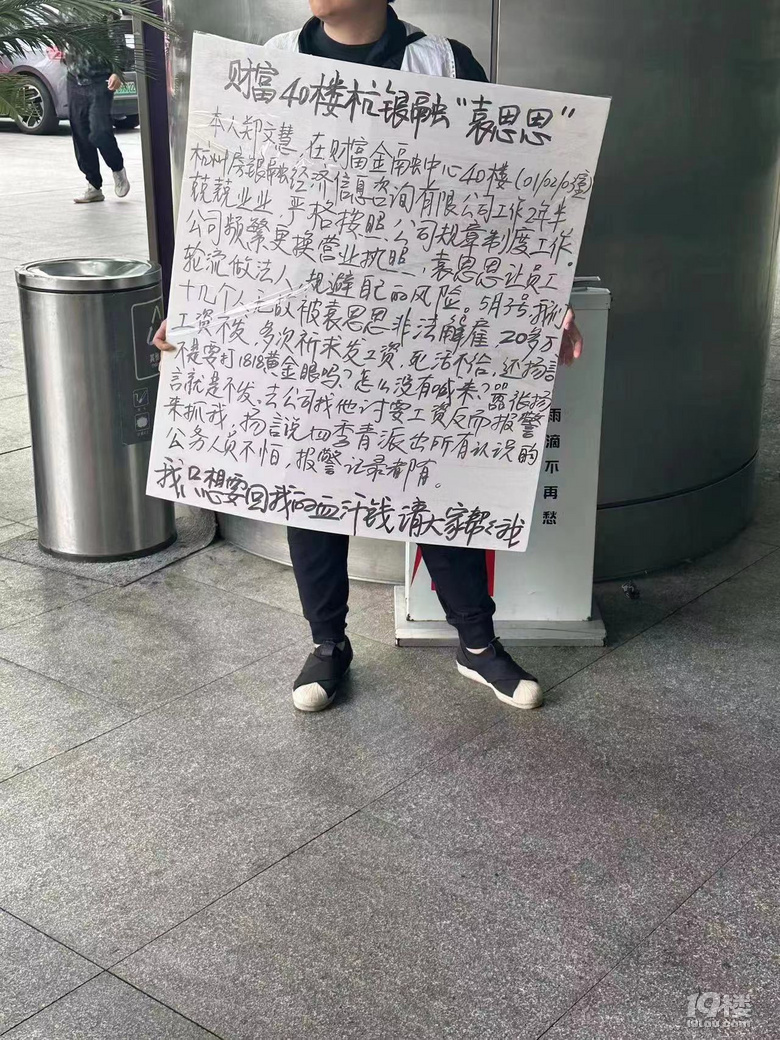 财富40楼杭银融“袁思恩”
本人郑文慧,在财富金融中心40楼(01/02/03室)
杭州房银融经济信息咨询有限公司工作2年半
兢兢业业,严格按照公司规章制度工作。
公司频繁更换营业执照,袁思恩让员工
轮流做法人,规避自己的风险。5月7号,我们
十几个人无故被袁思恩非法解雇,20多万
工资不发,多次祈求发工资,死活不给,还扬言
不是要打1818黄金眼吗?怎么没有喊来?嚣张扬
言就是不发,去公司找他讨要工资反而报警
来抓我,扬言说四季青派出所有认识的
公务人员不怕,报警记录都有。
我只想要回我的血汗钱请大家帮帮我
雨
滴
不
再
愁
19楼
19lou.com